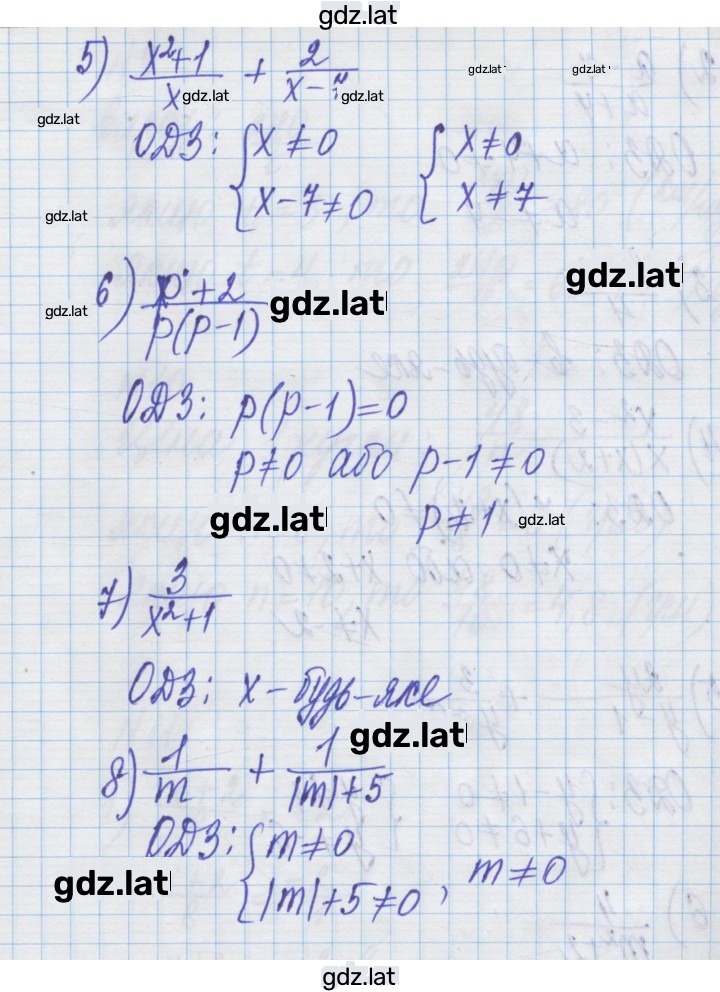 gdz.lat
5) (x²+1)/x + 2/(x-7)
gdz.lat gdz.lat gdz.lat gdz.lat
gdz.lat
ОДЗ: { x ≠ 0 { x ≠ 0
x-7 ≠ 0 x ≠ 7
gdz.lat
gdz.lat
6) (p+2)/(p(p-1))
gdz.lat gdz.lat
ОДЗ: p(p-1)=0
p≠0 або p-1≠0
gdz.lat p≠1 gdz.lat
7) 3/(x²+1)
ОДЗ: x - будь-яке
gdz.lat
8) 1/m + 1/(|m|+5)
ОДЗ: { m≠0
|m|+5≠0, m≠0
gdz.lat
gdz.lat